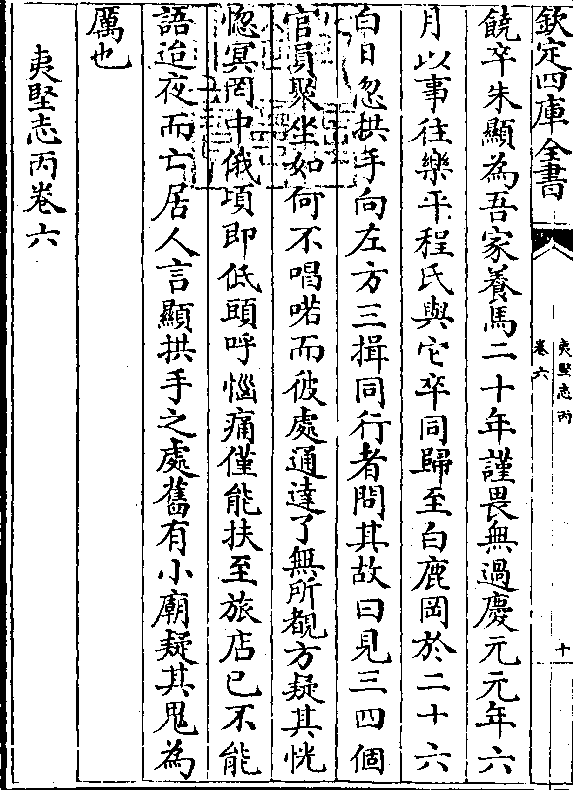 欽定四庫全書
夷堅志丙
卷六
十
饒卒朱顯為吾家養馬二十年謹畏無過慶元元年六
月以事往樂平程氏與它卒同歸至白鹿岡於二十六
白日忽拱手向左方三揖同行者問其故曰見三四個
官員聚坐如何不唱喏而彼處通達了無所覩方疑其恍
惚冥罔中俄頃即低頭呼惱痛僅能扶至旅店已不能
語迨夜而亡居人言顯拱手之處舊有小廟疑其鬼為
厲也
夷堅志丙卷六